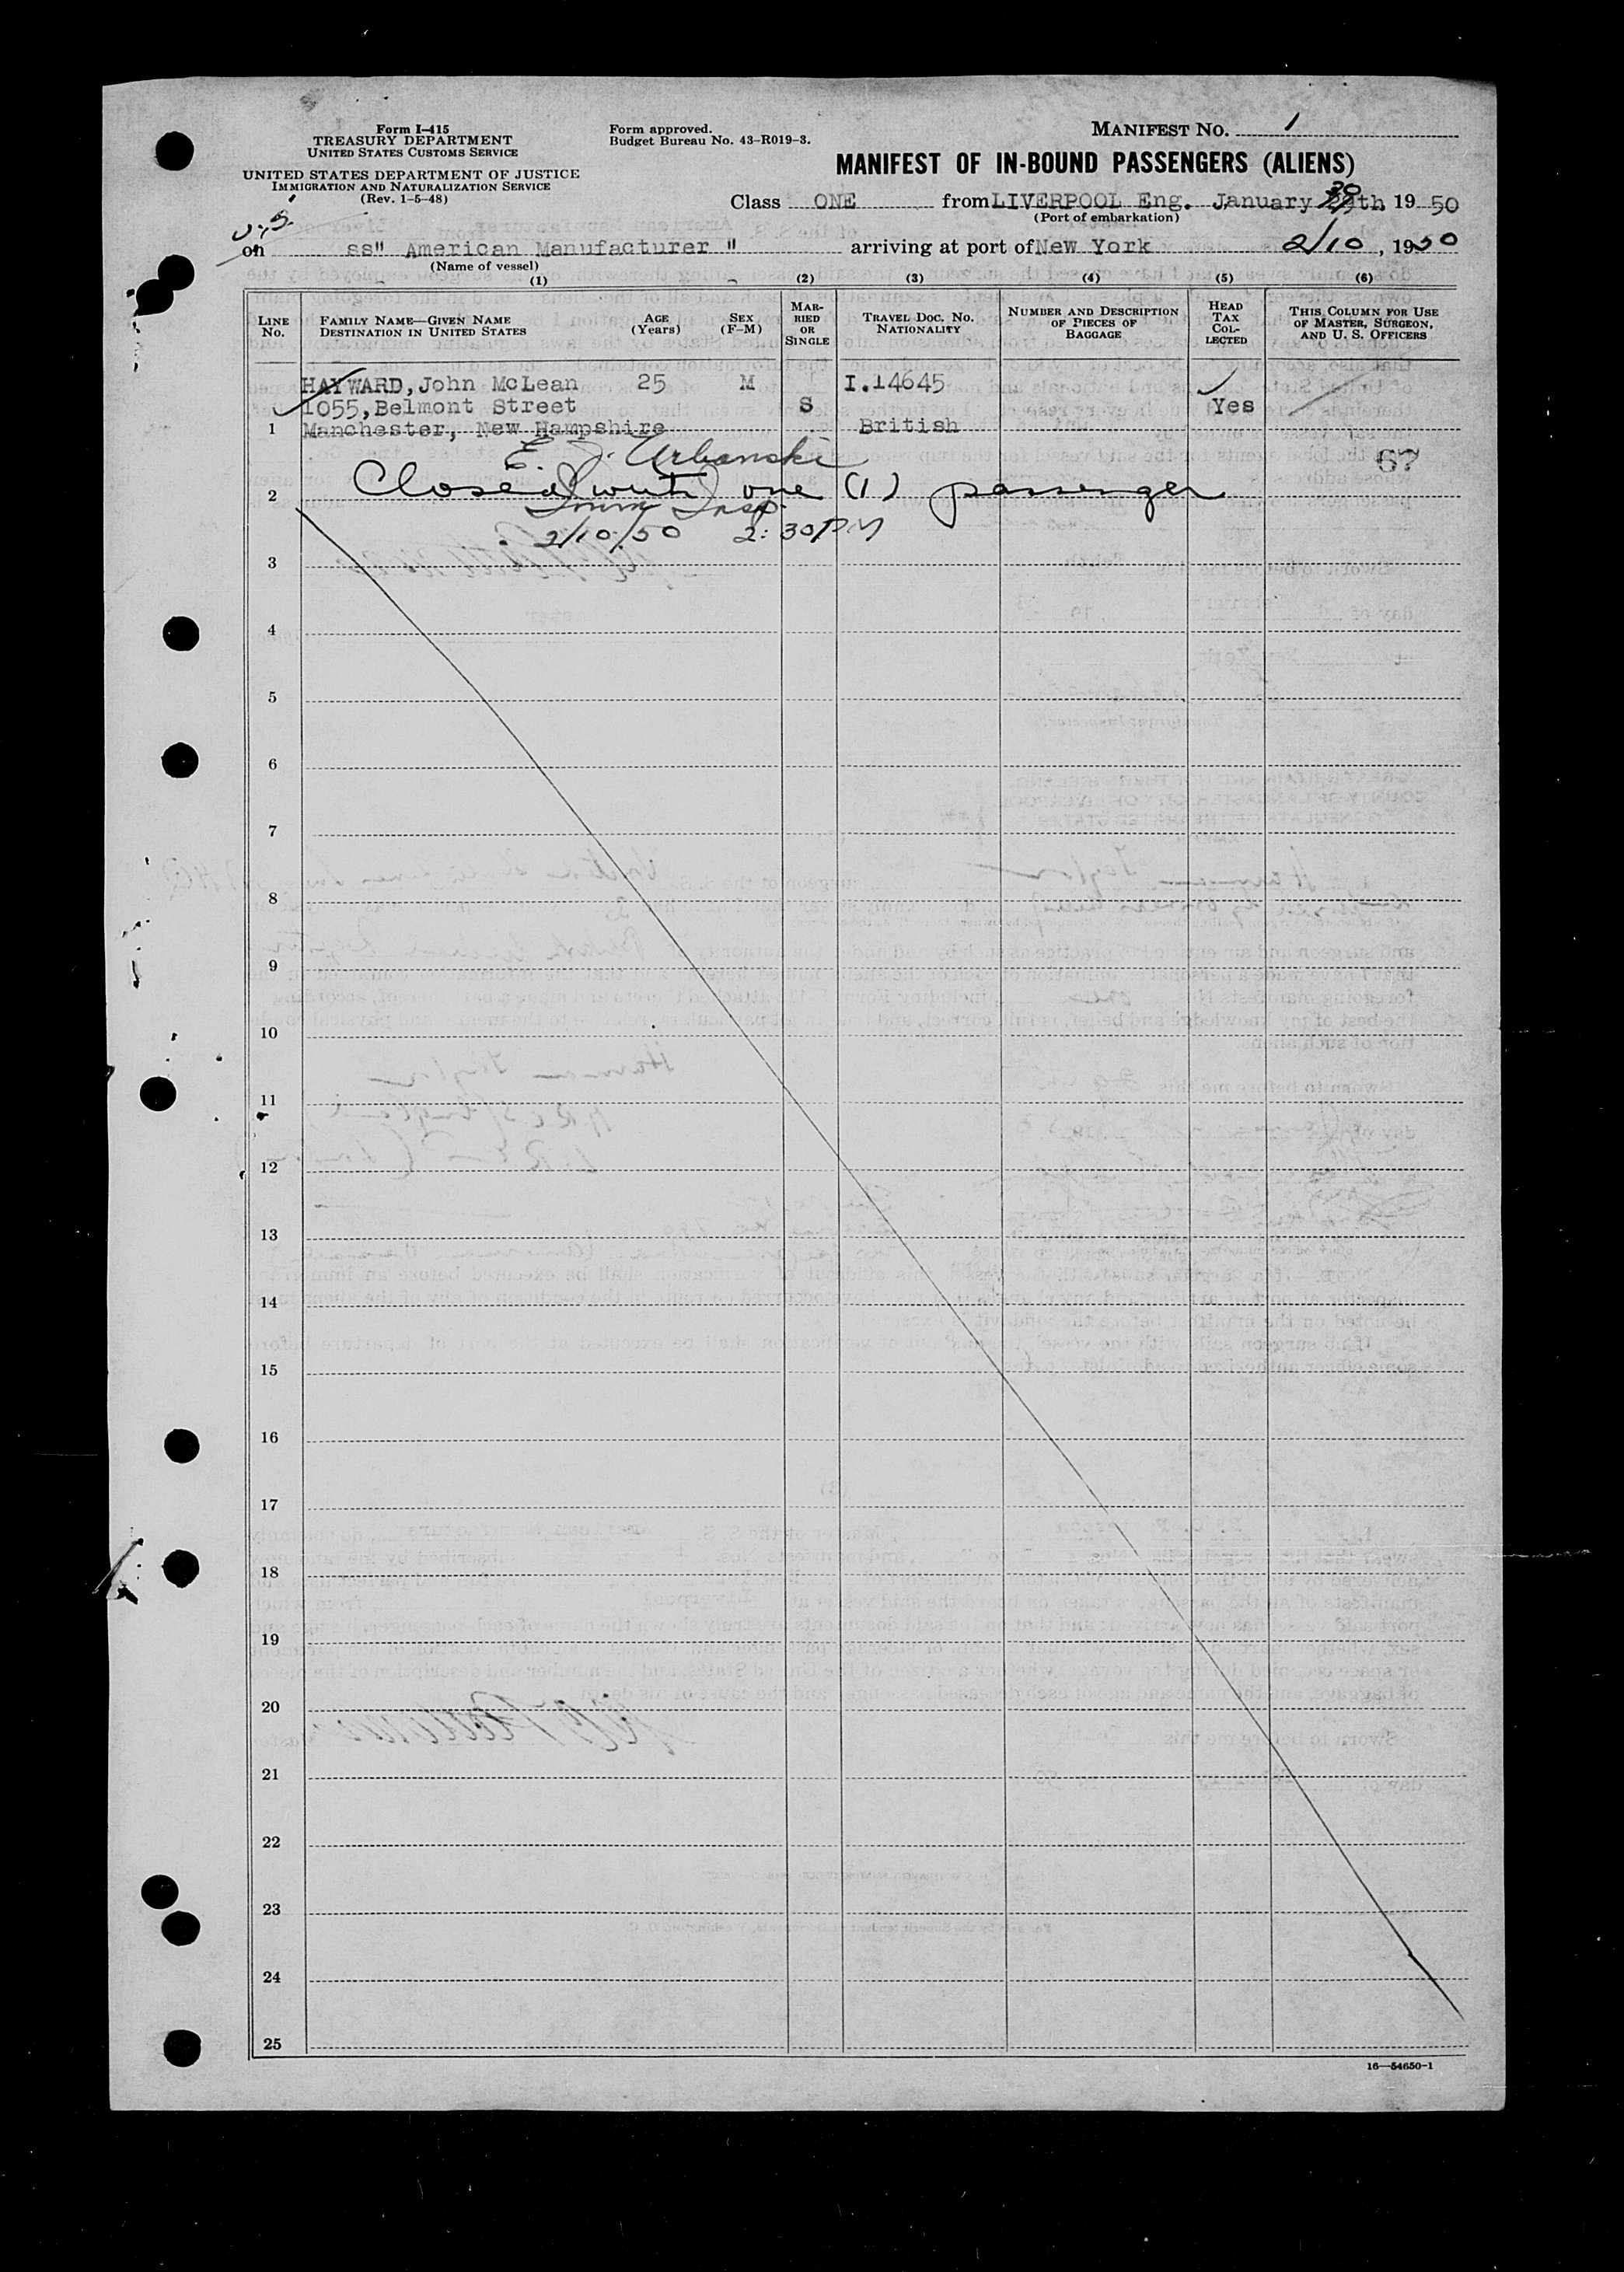 Form I-415
TREASURY DEPARTMENT
UNITED STATES CUSTOMS SERVICE
UNITED STATES DEPARTMENT OF JUSTICE
IMMIGRATION AND NATURALIZATION SERVICE
(Rev. 1-5-48)
Form approved.
Budget Bureau No. 43-R019-3.
MANIFEST NO. 1
MANIFEST OF IN-BOUND PASSENGERS (ALIENS)
Class ONE from LIVERPOOL Eng. January 30th, 1950
(Port of embarkation)
on ss" American Manufacturer " arriving at port of New York 2/10, 1950
(Name of vessel)
(1) (2) (3) (4) (5) (6)
LINE No. FAMILY NAME—GIVEN NAME DESTINATION IN UNITED STATES AGE (Years) SEX (F-M) MARRIED OR SINGLE TRAVEL DOC. NO. NATIONALITY NUMBER AND DESCRIPTION OF PIECES OF BAGGAGE HEAD TAX COLLECTED THIS COLUMN FOR USE OF MASTER, SURGEON, AND U. S. OFFICERS
HAYWARD, John McLean 25 M I.14645
1055, Belmont Street S Yes
1 Manchester, New Hampshire British
E. J. Urbanski 67
2 Closed with one (1) passenger
Imm Insp.
2/10/50 2:30 PM
3
4
5
6
7
8
9
10
11
12
13
14
15
16
17
18
19
20
21
22
23
24
25
16—54650-1